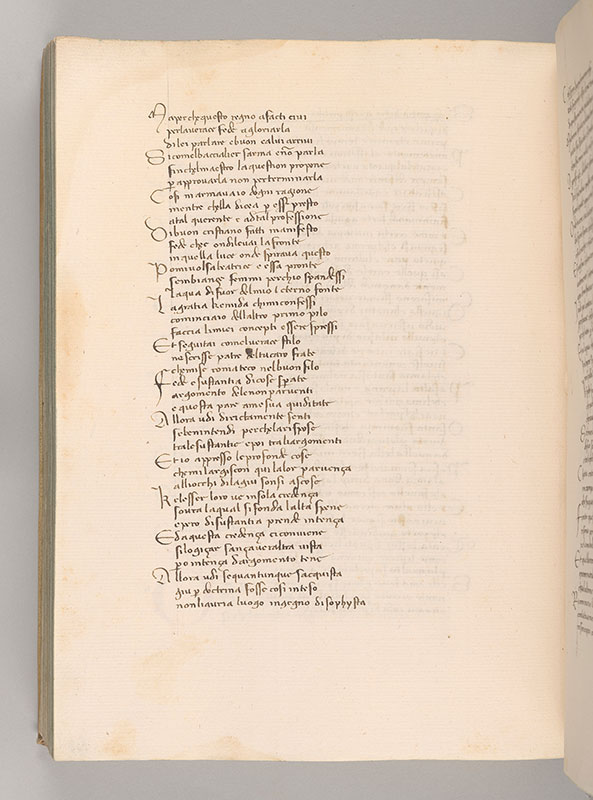 Ma perche questo regno a facti civi
per laverace fede a gloriarla
di lei parlare ebuon calui arrivi
Si comel baccialier sarma enō parla
finchelmaestro la question propone
p approvarla non perterminarla
Cosi marmavaio dogni ragione
mentre chella dicea p esser presto
atal querente e adtal professione
Di buon cristiano fatti manifesto
fede chee ondilevai lafronte
inquella luce onde spirava questo
Poi mivolsi abeatrice e essa pronte
sembiançe femmi perchio spandessi
laqua difuor delmio īcterno fonte
La gratia chemida chimi confessi
cominciaio dellaltro primo pilo
faccia limiei concepti essere spressi
Et seguitai comelverace stilo
ne scrisse patre deltucaro frate
chemise roma teco nelbuon filo
Fede e sustantia dicose sperate
argomento delenon parventi
e questa pare ame sua quiditate
Allora udi dirictamente senti
sebenintendi perchelarispose
tralesustantie epoi traliargomenti
Et io appresso leprofonde cose
chemi largiscon qui lalor parvença
alliocchi dilagiu sonsi ascose
Kelesser loro ve insola credença
sovra laqual si fonda lalta spene
epero disustantia prende intença
Eda questa credença ci convene
silogiçar sançaveraltra vista
po intença dargomento tene
Allora udi sequantunque sacquista
giu p doctrina fosse cosi inteso
nonliavria luogo ingegno di sophysta